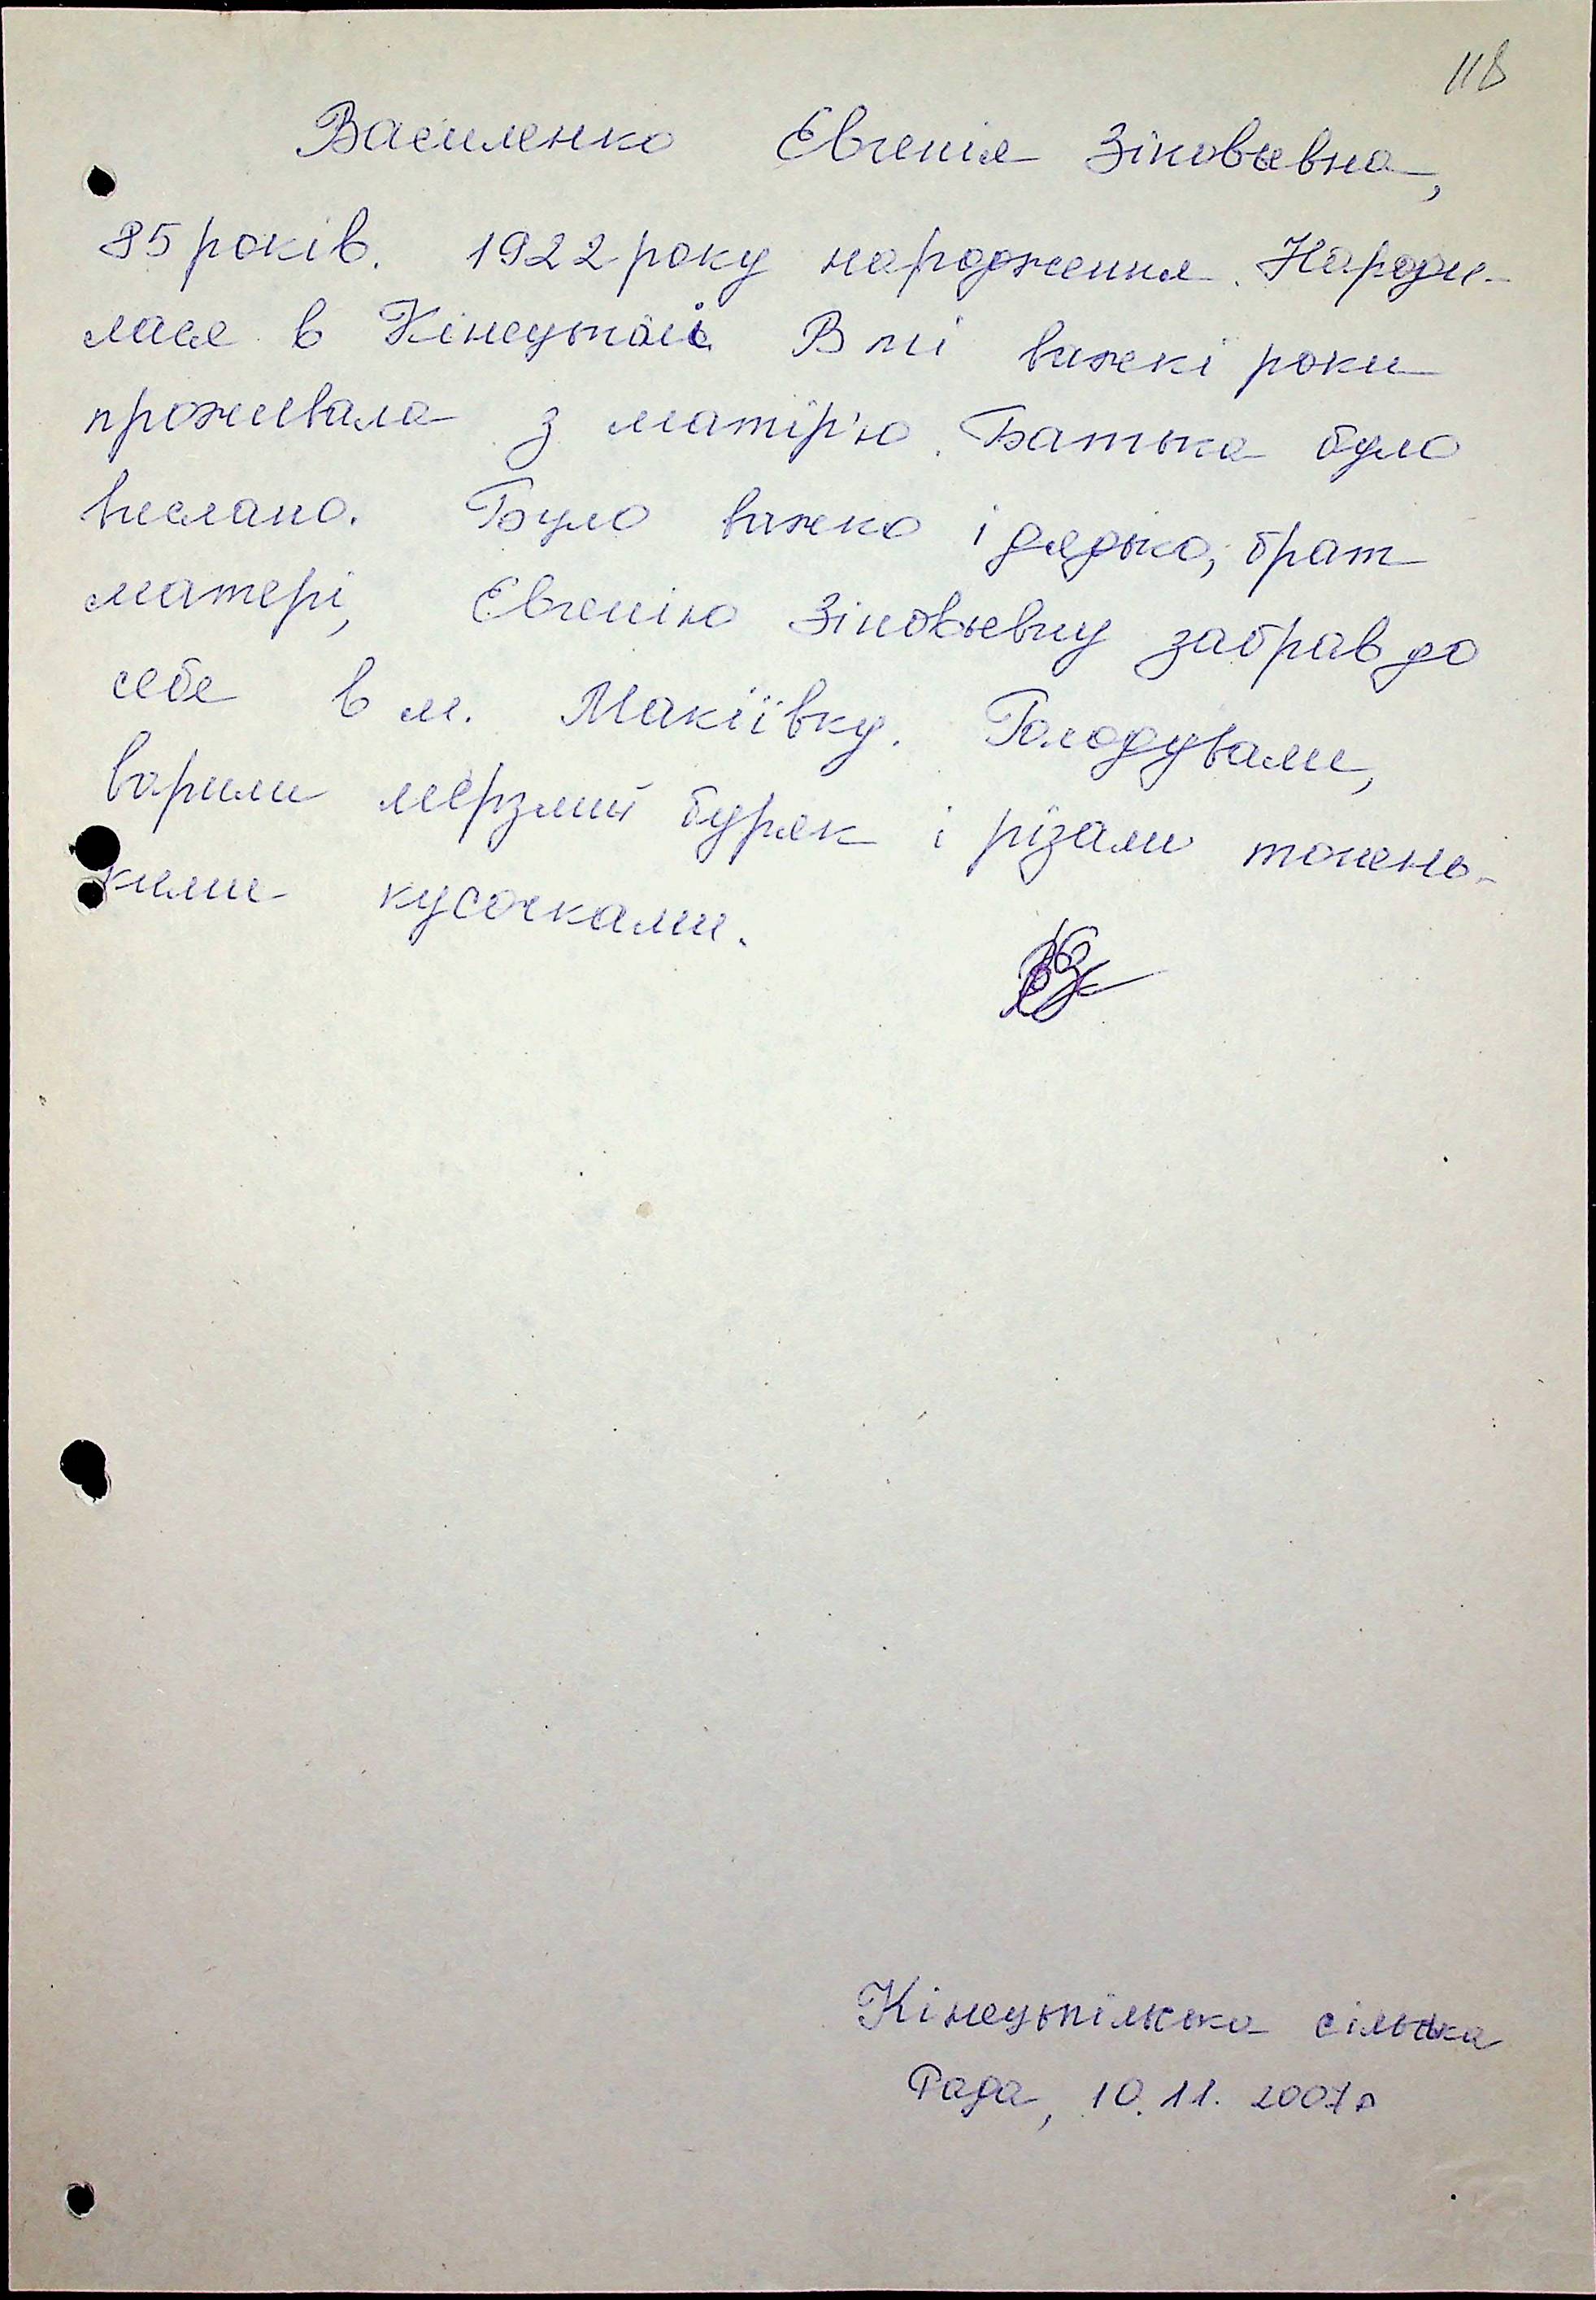 118
Василенко Євгенія Зіновьевна,
85 років. 1922 року народження. Народи-
лася в Кінецьполі. В ті важкі роки
проживала з матір'ю. Батька було
вислано. Було важко і дядько, брат
матері, Євгенію Зіновьевну забрав до
себе в м. Макіївку. Голодували,
варили мерзлий буряк і різали тонень-
кими кусочками.
Кінецьпільська сільська
Рада, 10.11.2007р